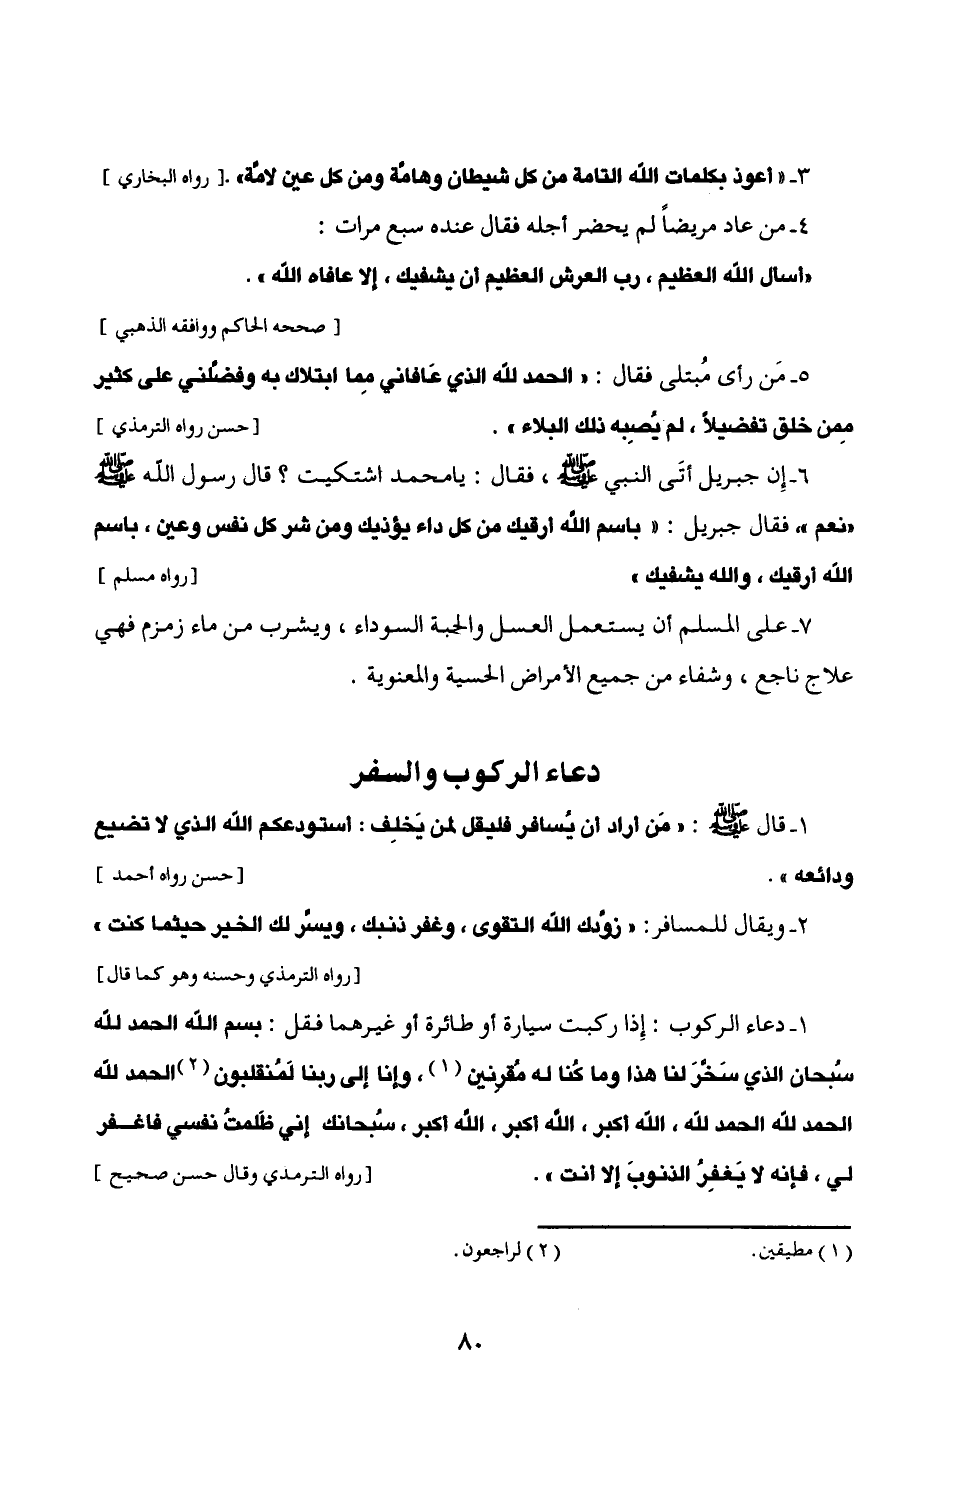 ٣ـ « أعوذ بكلمات الله التامة من كل شيطان وهامَّة ومن كل عين لامَّة» .[ رواه البخاري ]
٤ـ من عاد مريضاً لم يحضر أجله فقال عنده سبع مرات :
«أسأل الله العظيم ، رب العرش العظيم أن يشفيك ، إلا عافاه الله » .
[ صححه الحاكم ووافقه الذهبي ]
٥ـ مَن رأى مُبتلى فقال : « الحمد لله الذي عَافاني مِما ابتلاك به وفضَّلني على كثير
مِمن خلق تفضيلاً ، لم يُصِبه ذلك البلاء » .
[حسن رواه الترمذي ]
٦ـ إن جبريل أتَى النبي ﷺ ، فقال : يامحمد اشتكيت ؟ قال رسول الله ﷺ
«نعم »، فقال جبريل : « باسم الله أرقيك من كل داء يؤذيك ومن شر كل نفس وعين ، باسم
الله أرقيك ، والله يشفيك »
[رواه مسلم ]
٧ـ على المسلم أن يستعمل العسل والحبة السوداء ، ويشرب من ماء زمزم فهي
علاج ناجع ، وشفاء من جميع الأمراض الحسية والمعنوية .
دعاء الركوب والسفر
١ـ قال ﷺ : « مَن أراد أن يُسافر فليقل لمن يَخلِف : أستودعكم الله الذي لا تضيع
ودائعه » .
[حسن رواه أحمد ]
٢ـ ويقال للمسافر: « زوَّدك الله التقوى ، وغفر ذنبك ، ويسرَّ لك الخير حيثما كنت »
[رواه الترمذي وحسنه وهو كما قال]
١ـ دعاء الركوب : إذا ركبت سيارة أو طائرة أو غيرهما فقل : بسم الله الحمد لله
سُبحان الذي سَخَّرَ لنا هذا وما كُنا له مُقرِنين (١) ، وإنا إلى ربنا لَمُنقلبون (٢) الحمد لله
الحمد لله الحمد لله ، الله أكبر ، الله أكبر ، الله أكبر ، سُبحانك إني ظَلمتُ نفسي فاغـفر
لي ، فإنه لا يَغفِرُ الذنوبَ إلا أنت » .
[رواه الترمذي وقال حسن صحيح ]
(١) مطيقين.
(٢) لراجعون .
٨٠